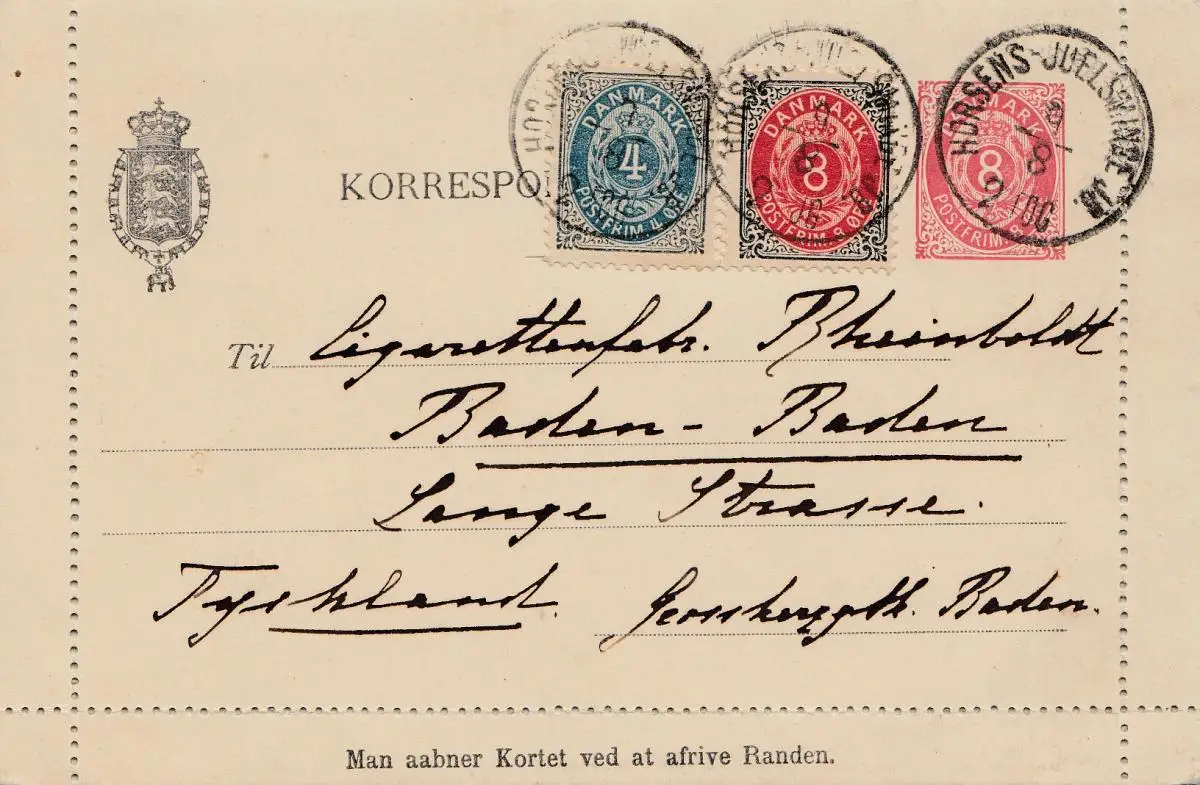 KORRESPO
DANMARK
4
POSTFRIM. 4 ØRE
DANMARK
8
POSTFRIM. 8 ØRE
8
POSTFRIM. 8
HORSENS-JUELSMINDE JB.
2 TOG
Til Cigarettenfabr. Rheinboldt
Baden-Baden
Lange Strasse.
Tyskland. Grossherzgth. Baden.
Man aabner Kortet ved at afrive Randen.